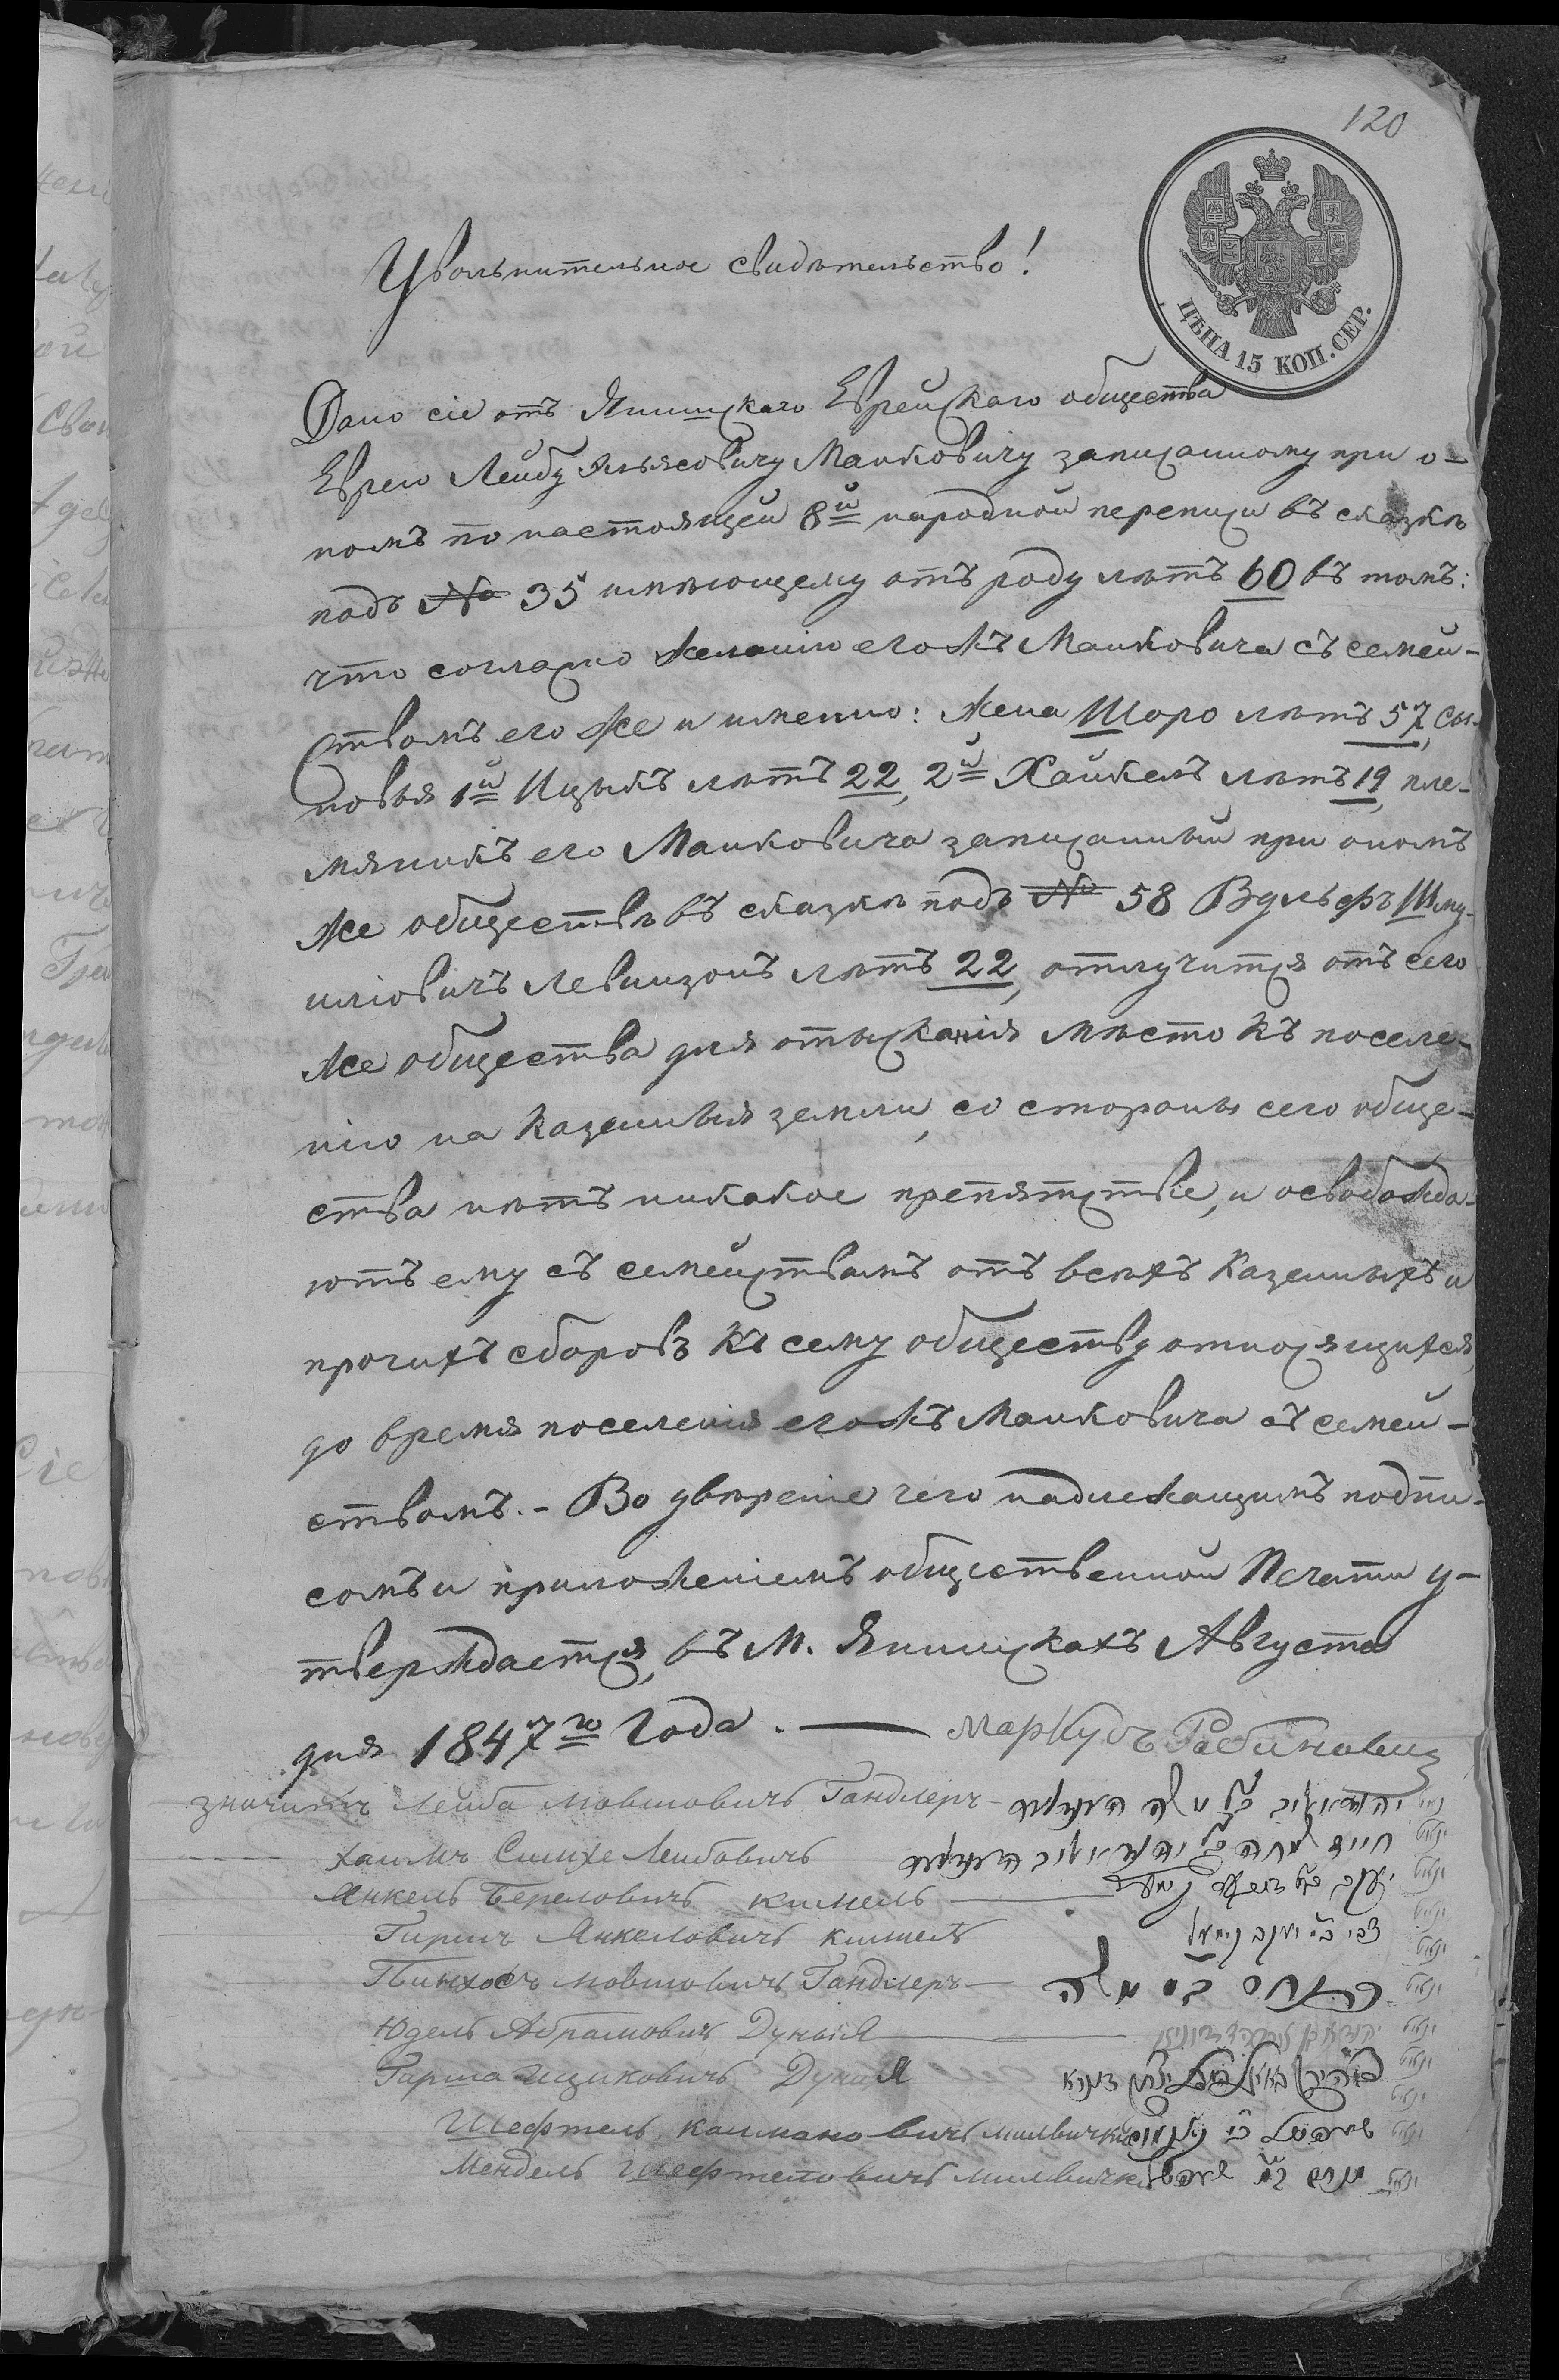 120
ЦѢНА 15 КОП. СЕР.
Увольнительное свидѣтельство!
Дано сіе отъ Янишскаго Еврейскаго общества
Еврею Лейбу Эльясовичу Манковичу записанному при о-
номъ по настоящей 8й народной переписи въ сказкѣ
подъ № 35 имѣющему отъ роду лѣтъ 60 въ томъ:
что согласно желанію егожъ Манковича съ семей-
ствомъ его же и имянно: жена Шоро лѣтъ 57, сы-
новья 1й Ицыкъ лѣтъ 22, 2й Хайкель лѣтъ 19, пле-
мяникъ его Манковича записанный при ономъ
же обществѣ въ сказкѣ подъ № 58 Вульфъ Шму-
иліовичъ Левинзонъ лѣтъ 22, отлучится отъ сего
же общества для отысканія мѣсто къ поселе-
нію на казенныя земли, со стороны сего обще-
ства нѣтъ никакое препятствіе, и освобожда-
ютъ ему съ семействамъ отъ всѣхъ казенныхъ и
прочихъ сборовъ къ сему обществу относящихся,
до время поселенія егожъ Манковича съ семей-
ствомъ. - Во увѣреніе чего надлежащимъ подпи-
сомъ и приложеніемъ общественной Печати у-
тверждается, въ М. Янишкахъ Августа
дня 1847го Года. — Маркусъ Рабиновиц
значитъ Лейба Мовшовичъ Гандлеръ
Хаимъ Симхе Лейбовичъ
Янкель Береловичъ Кимель
Гиршъ Янкеловичъ Кимель צבי בר יעקב קימעל
Пинхосъ Мовшовичъ Гандлеръ פנחס בר משה
Юдель Абрамовичъ Дуныя
Гирша Ицыковичъ Дуния
Шефтель Калмановичъ שעפטל בר קלמן
Мендель Шефтеловичъ